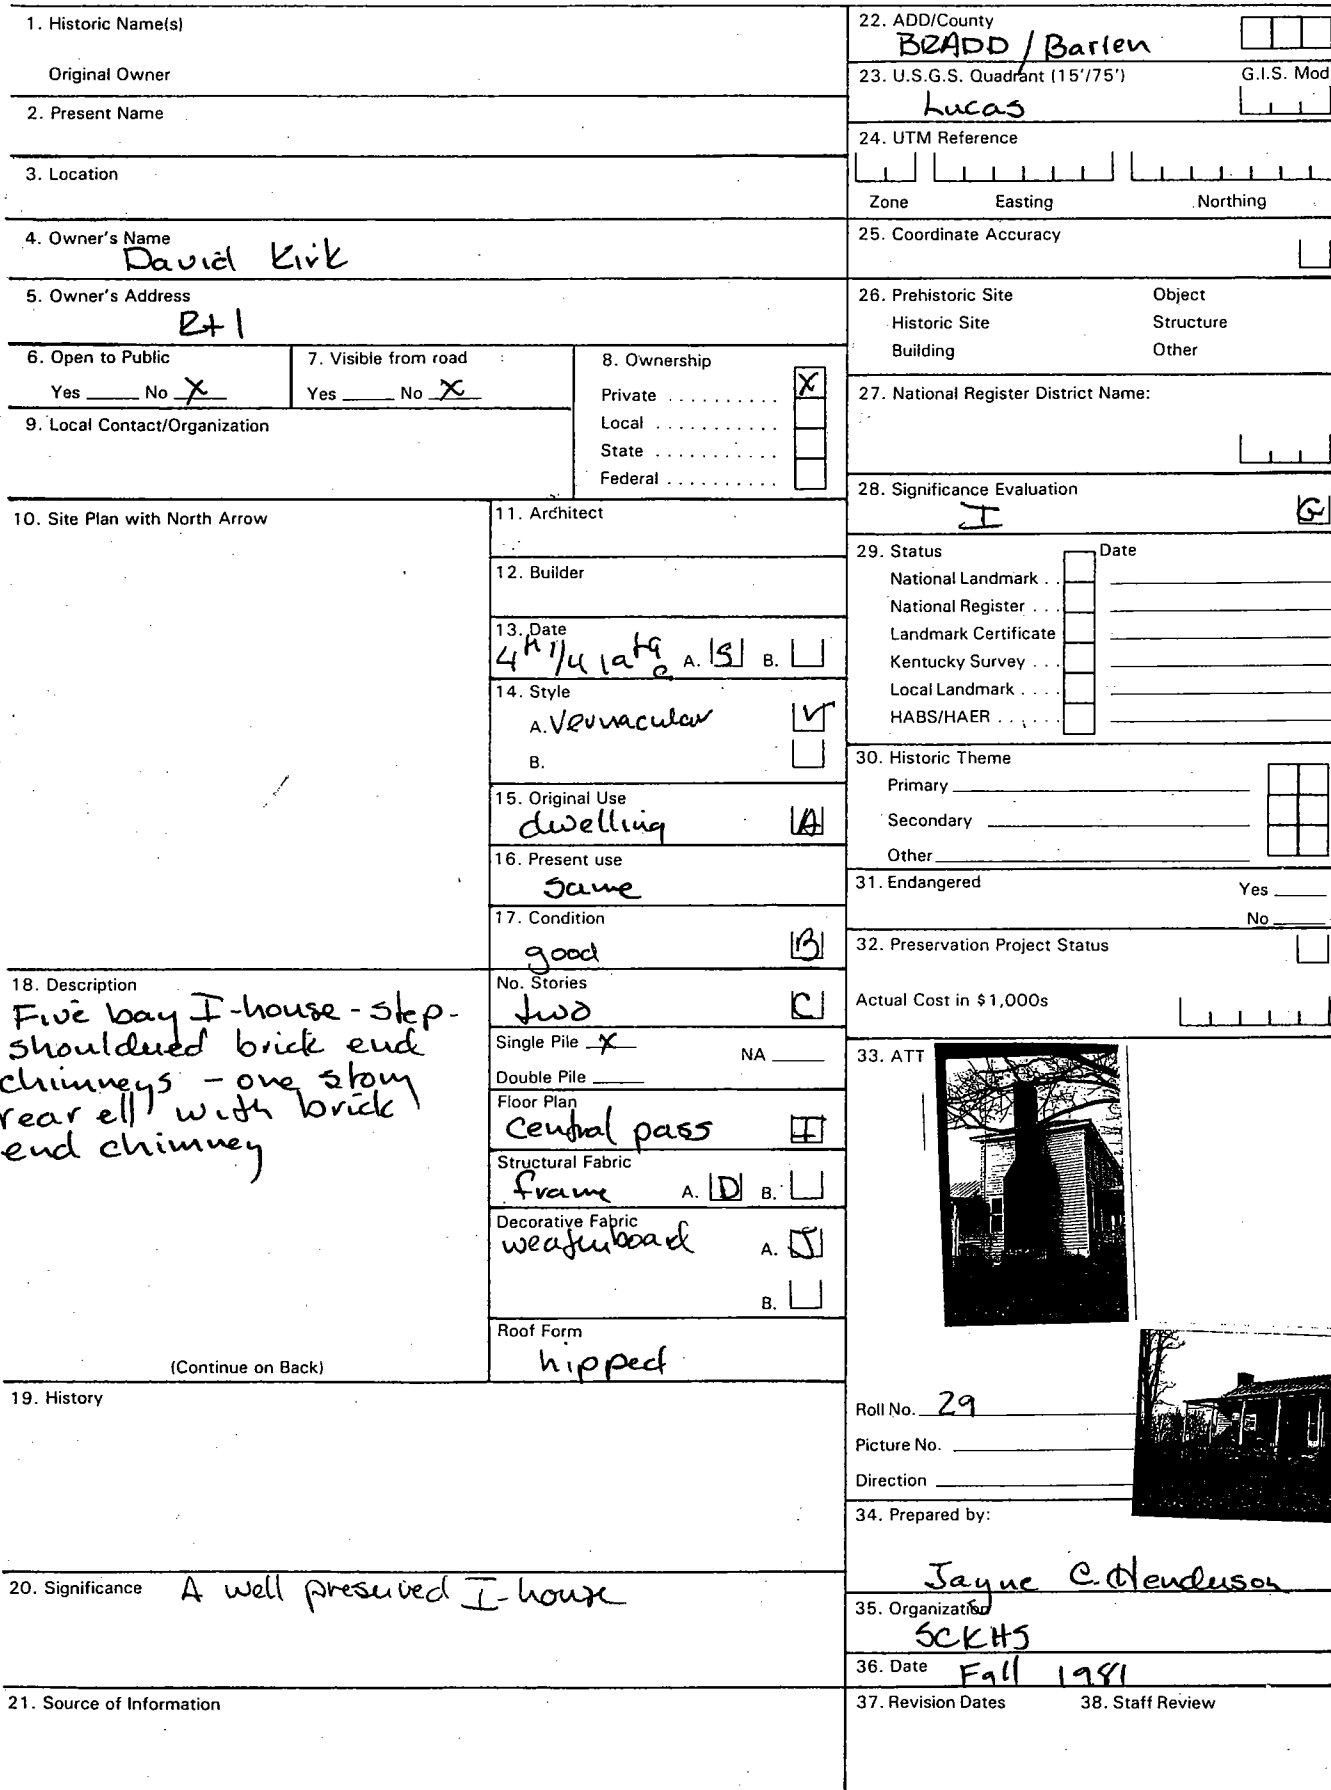 1. Historic Name(s)
Original Owner
2. Present Name
3. Location
4. Owner's Name
David Kirk
5. Owner's Address
Rt 1
6. Open to Public
Yes ____ No X
7. Visible from road
Yes ____ No X
8. Ownership
Private .......... X
Local ...........
State ...........
Federal ..........
9. Local Contact/Organization
10. Site Plan with North Arrow
11. Architect
12. Builder
13. Date
4th 1/4 19th c A. S B.
14. Style
A. Vernacular V
B.
15. Original Use
dwelling A
16. Present use
same
17. Condition
good B
18. Description
Five bay I-house - step-
shouldered brick end
chimneys - one story
rear ell with brick
end chimney
(Continue on Back)
No. Stories
two C
Single Pile X NA ____
Double Pile ____
Floor Plan
Central pass I
Structural Fabric
frame A. D B.
Decorative Fabric
weatherboard A. J
B.
Roof Form
hipped
19. History
20. Significance A well preserved I-house
21. Source of Information
22. ADD/County
BRADD / Barren
23. U.S.G.S. Quadrant (15'/75') G.I.S. Mod
Lucas
24. UTM Reference
Zone Easting Northing
25. Coordinate Accuracy
26. Prehistoric Site Object
Historic Site Structure
Building Other
27. National Register District Name:
28. Significance Evaluation
I G
29. Status Date
National Landmark . .
National Register . . .
Landmark Certificate
Kentucky Survey . . .
Local Landmark . . . .
HABS/HAER . . . . . .
30. Historic Theme
Primary
Secondary
Other
31. Endangered Yes ____
No ____
32. Preservation Project Status
Actual Cost in $1,000s
33. ATT
Roll No. 29
Picture No.
Direction
34. Prepared by:
Jayne C. Henderson
35. Organization
SCKHS
36. Date Fall 1981
37. Revision Dates 38. Staff Review